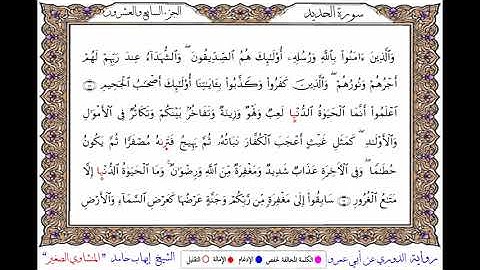 سورة الحديد الجزء السابع والعشرون
وَٱلَّذِينَ ءَامَنُواْ بِٱللَّهِ وَرُسُلِهِۦٓ أُوْلَـٰٓئِكَ هُمُ ٱلصِّدِّيقُونَ ۖ وَٱلشُّهَدَآءُ عِندَ رَبِّهِمْ لَهُمْ
أَجْرُهُمْ وَنُورُهُمْ ۖ وَٱلَّذِينَ كَفَرُواْ وَكَذَّبُواْ بِـَٔايَـٰتِنَآ أُوْلَـٰٓئِكَ أَصْحَـٰبُ ٱلْجَحِيمِ
ٱعْلَمُوٓاْ أَنَّمَا ٱلْحَيَوٰةُ ٱلدُّنْيَا لَعِبٌ وَلَهْوٌ وَزِينَةٌ وَتَفَاخُرٌۢ بَيْنَكُمْ وَتَكَاثُرٌ فِى ٱلْأَمْوَٰلِ
وَٱلْأَوْلَـٰدِ ۖ كَمَثَلِ غَيْثٍ أَعْجَبَ ٱلْكُفَّارَ نَبَاتُهُۥ ثُمَّ يَهِيجُ فَتَرَىٰهُ مُصْفَرًّا ثُمَّ يَكُونُ
حُطَـٰمًا ۖ وَفِى ٱلْأَخِرَةِ عَذَابٌ شَدِيدٌ وَمَغْفِرَةٌ مِّنَ ٱللَّهِ وَرِضْوَٰنٌ ۚ وَمَا ٱلْحَيَوٰةُ ٱلدُّنْيَآ إِلَّا
مَتَـٰعُ ٱلْغُرُورِ سَابِقُوٓاْ إِلَىٰ مَغْفِرَةٍ مِّن رَّبِّكُمْ وَجَنَّةٍ عَرْضُهَا كَعَرْضِ ٱلسَّمَآءِ وَٱلْأَرْضِ
رواية الدوري عن أبي عمرو الكلمة المخالفة لحفص الإدغام الإمالة التقليل الشيخ إيهاب حامد "المنشاوي الصغير"